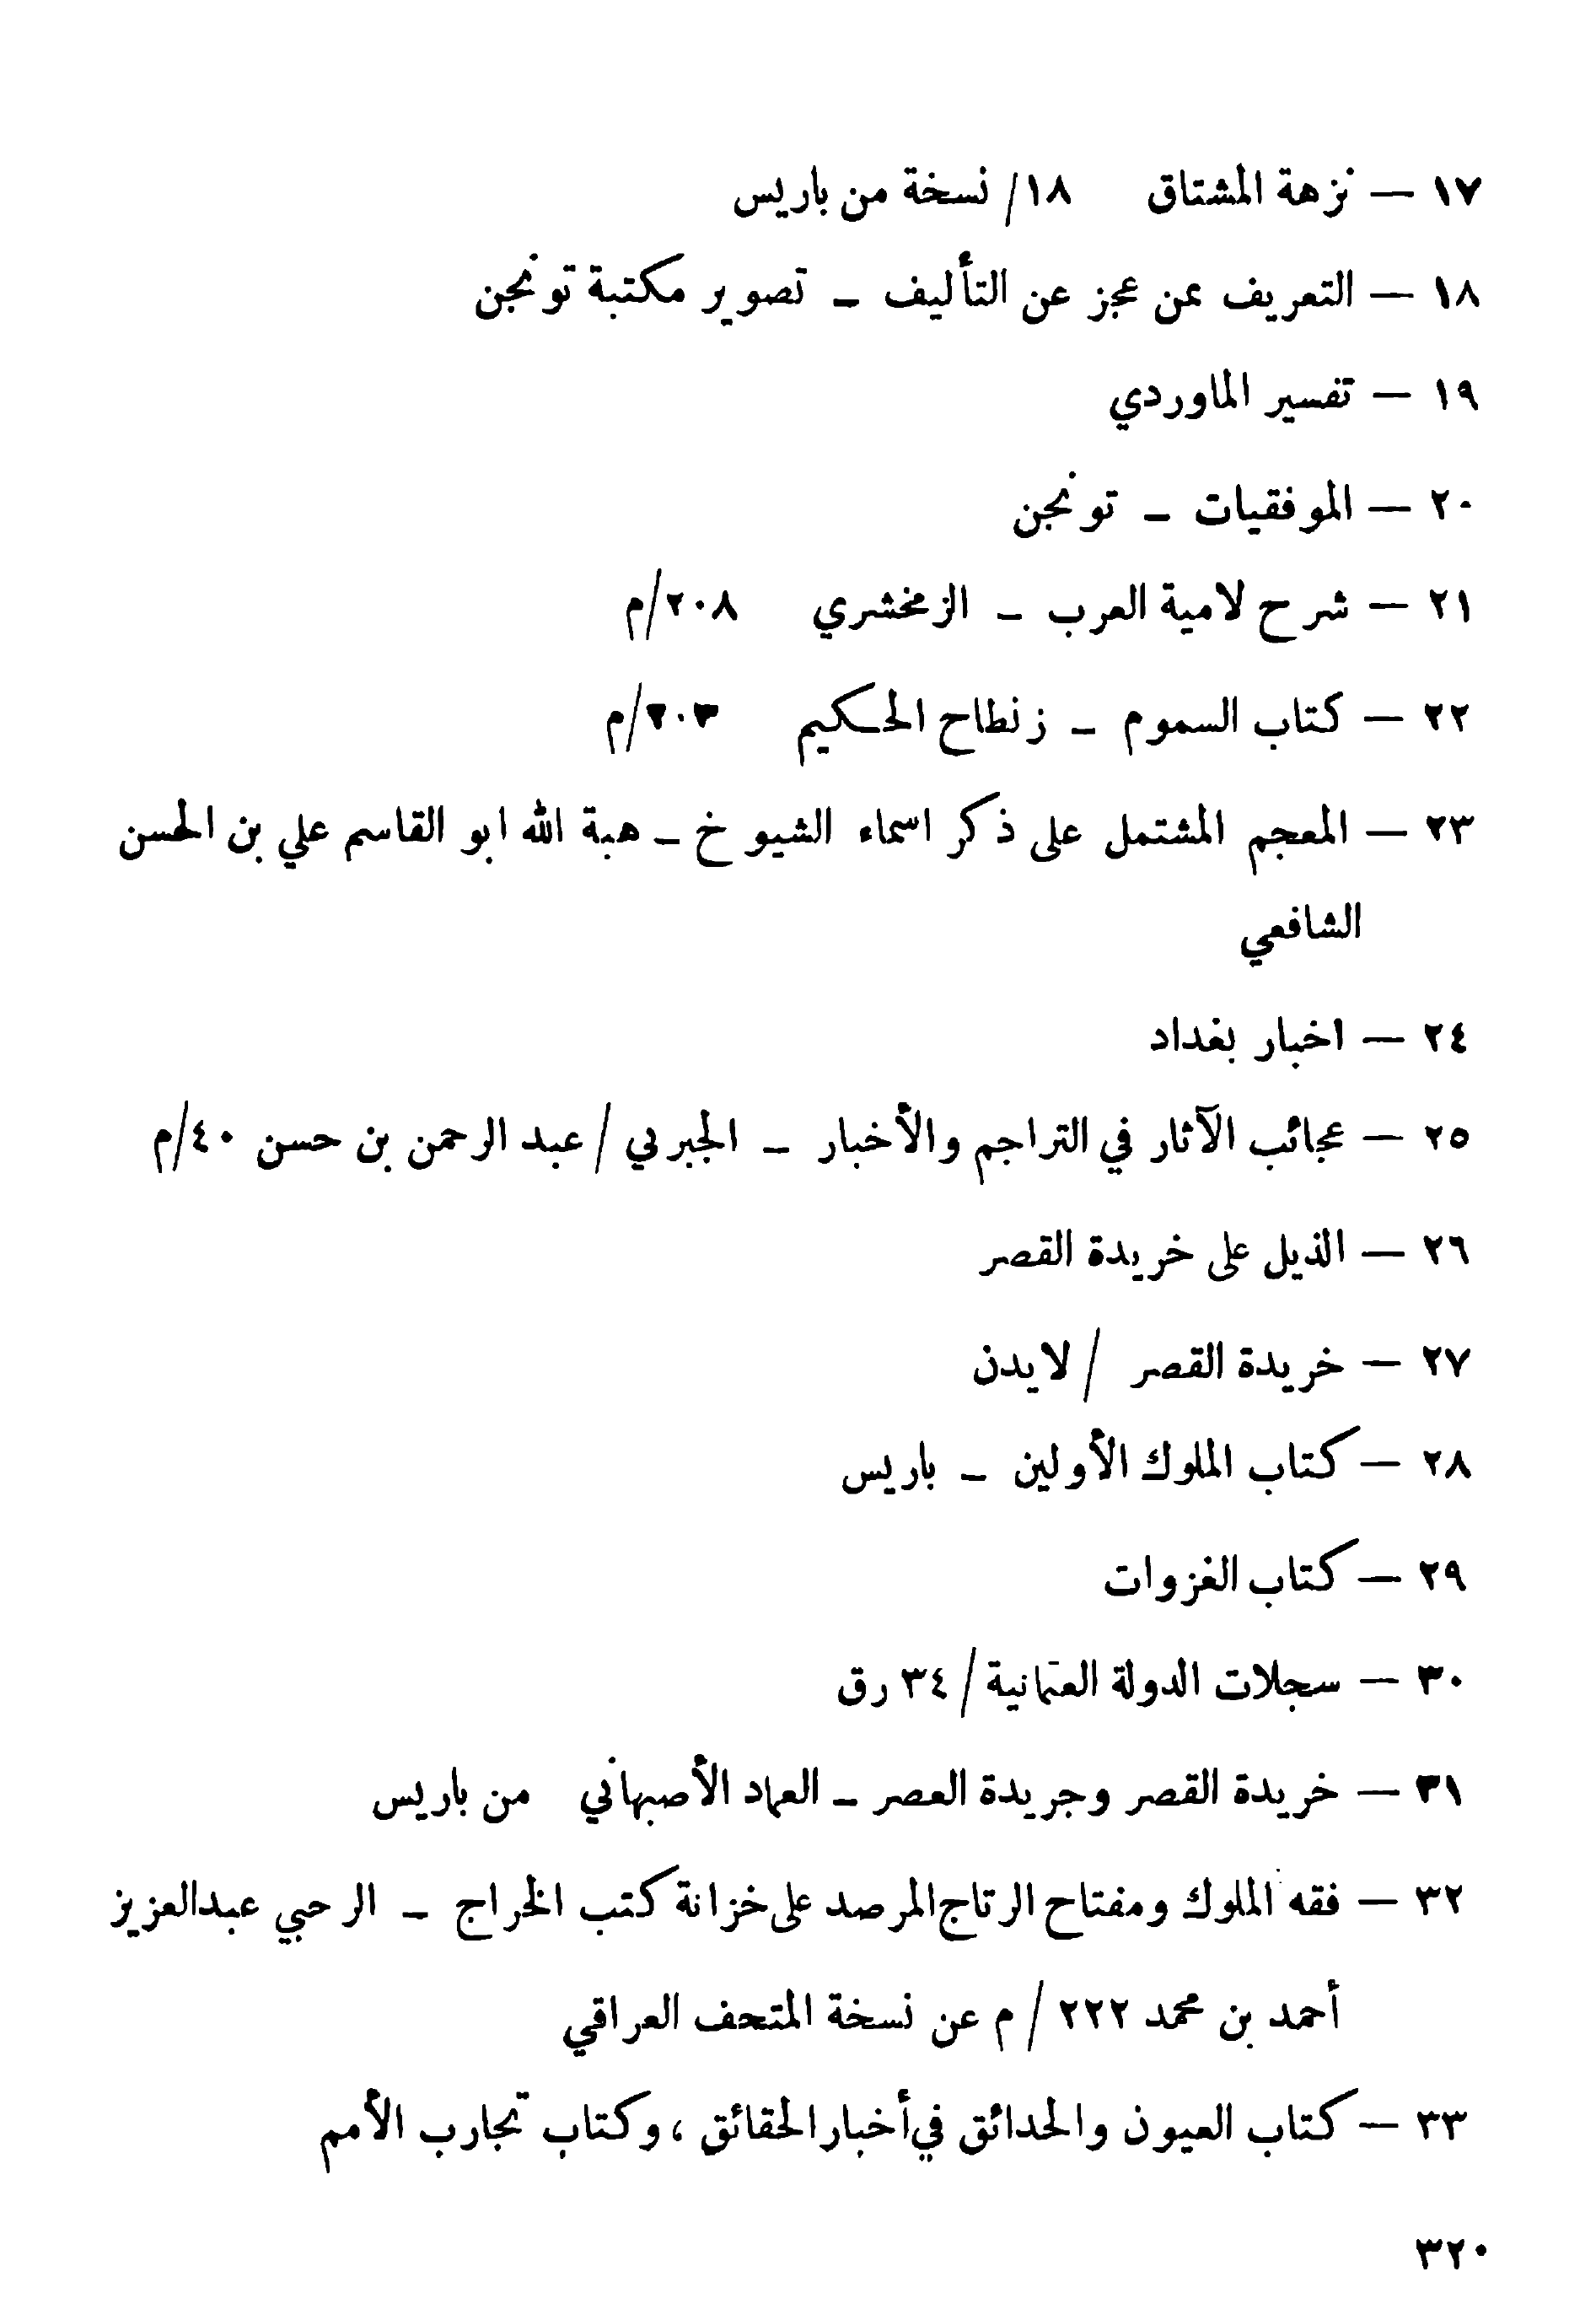 ١٧ — نزهة المشتاق ١٨/ نسخة من باريس
١٨ — التعريف بمن عجز عن التأليف – تصوير مكتبة تونجن
١٩ — تفسير الماوردي
٢٠ — الموفقيات – تونجن
٢١ — شرح لامية العرب – الزمخشري ٢٠٨/م
٢٢ — كتاب السموم – زنطاح الحكيم ٢٠٣/م
٢٣ — المعجم المشتمل على ذكر اسماء الشيوخ – هبة الله ابو القاسم علي بن الحسن
الشافعي
٢٤ — اخبار بغداد
٢٥ — عجائب الآثار في التراجم والأخبار – الجبرتي / عبد الرحمن بن حسن ٤٠/م
٢٦ — الذيل على خريدة القصر
٢٧ — خريدة القصر / لايدن
٢٨ — كتاب الملوك الأولين – باريس
٢٩ — كتاب الغزوات
٣٠ — سجلات الدولة العثمانية / ٣٤ رق
٣١ — خريدة القصر وجريدة العصر – العماد الأصبهاني من باريس
٣٢ — فقه الملوك ومفتاح الرتاج المرصد على خزانة كتب الخراج – الرحبي عبدالعزيز
أحمد بن محمد ٢٢٢ / م عن نسخة المتحف العراقي
٣٣ — كتاب العيون والحدائق في أخبار الحقائق ، وكتاب تجارب الأمم
٣٢٠